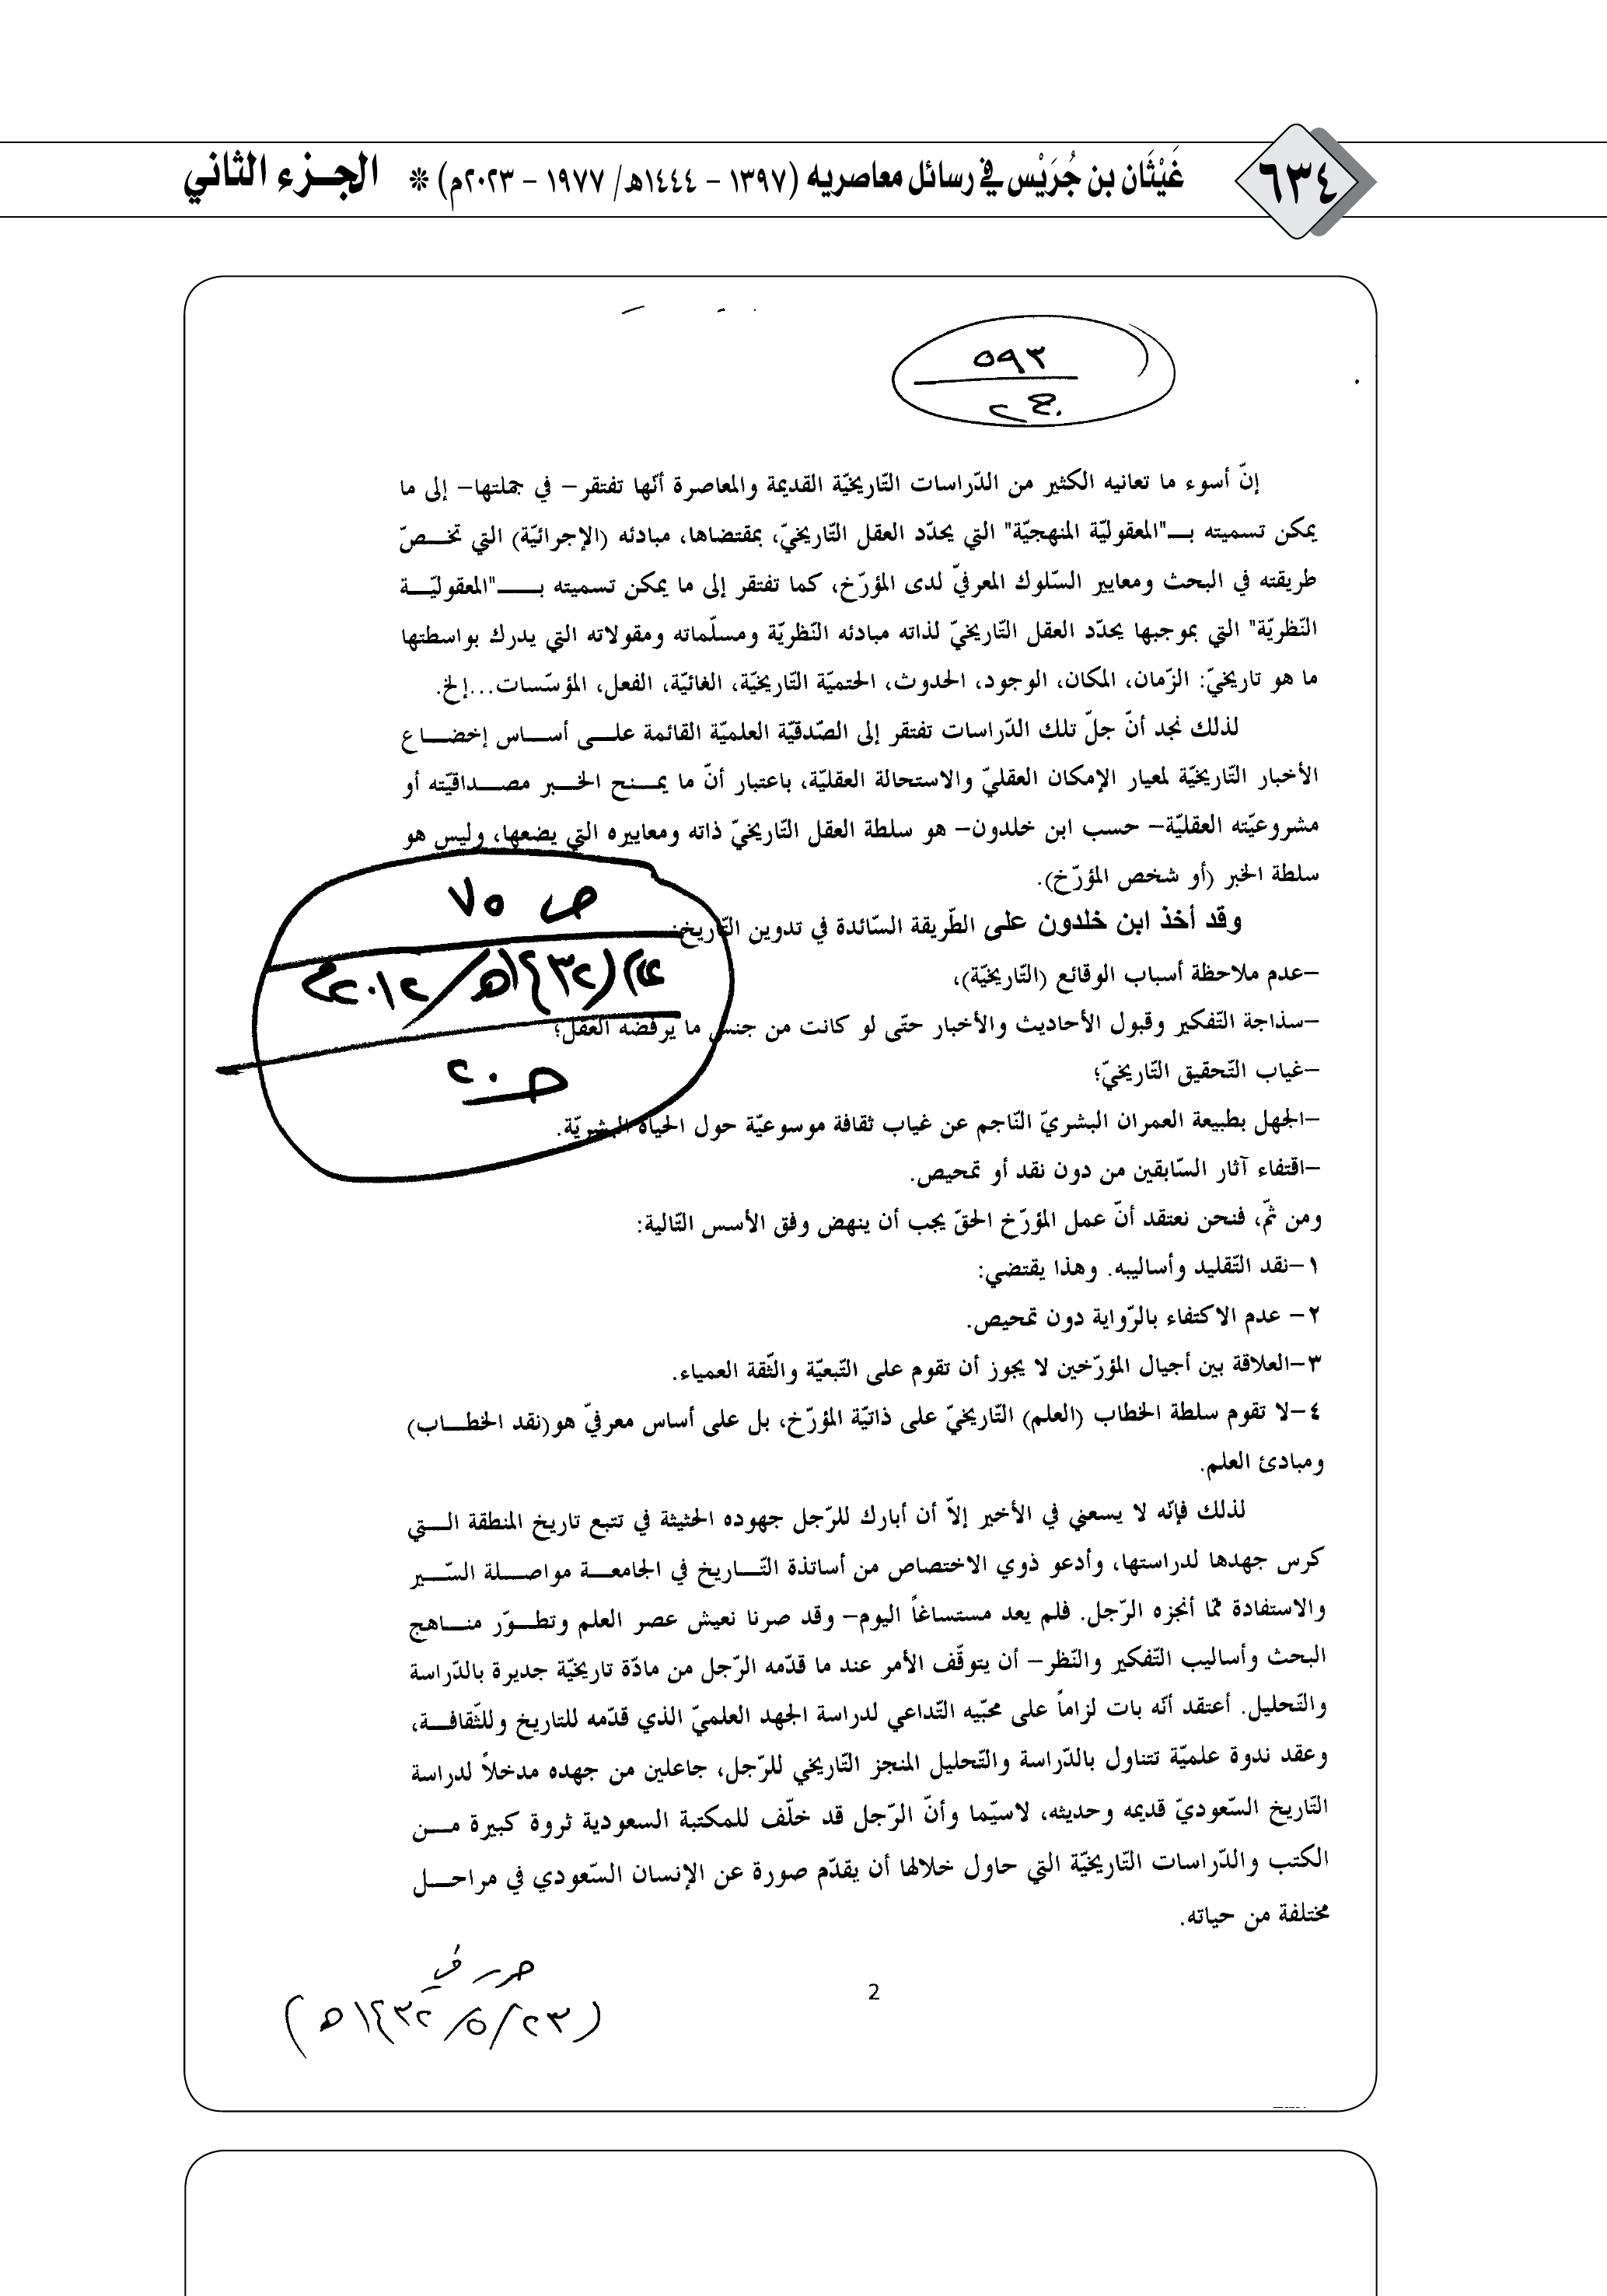 ٦٣٤
غَيْثَان بن جُرَيْس في رسائل معاصريه (١٣٩٧ – ١٤٤٤هـ/ ١٩٧٧ – ٢٠٢٣م) ❊ الجـزء الثاني
٥٩٣
ج٢
إنّ أسوء ما تعانيه الكثير من الدّراسات التّاريخيّة القديمة والمعاصرة أنّها تفتقر– في جملتها– إلى ما
يمكن تسميته بــ"المعقوليّة المنهجيّة" التي يحدّد العقل التّاريخيّ، بمقتضاها، مبادئه (الإجرائيّة) التي تخـصّ
طريقته في البحث ومعايير السّلوك المعرفيّ لدى المؤرّخ، كما تفتقر إلى ما يمكن تسميته بــــ"المعقوليّــة
النّظريّة" التي بموجبها يحدّد العقل التّاريخيّ لذاته مبادئه النّظريّة ومسلّماته ومقولاته التي يدرك بواسطتها
ما هو تاريخيّ: الزّمان، المكان، الوجود، الحدوث، الحتميّة التّاريخيّة، الغائيّة، الفعل، المؤسّسات...إلخ.
لذلك نجد أنّ جلّ تلك الدّراسات تفتقر إلى الصّدقيّة العلميّة القائمة علـى أسـاس إخضـاع
الأخبار التّاريخيّة لمعيار الإمكان العقليّ والاستحالة العقليّة، باعتبار أنّ ما يمـنح الخـبر مصـداقيّته أو
مشروعيّته العقليّة– حسب ابن خلدون– هو سلطة العقل التّاريخيّ ذاته ومعاييره التي يضعها، وليس هو
سلطة الخبر (أو شخص المؤرّخ).
ص ٧٥
وقد أخذ ابن خلدون على الطّريقة السّائدة في تدوين التّاريخ:
–عدم ملاحظة أسباب الوقائع (التّاريخيّة)،
(١٤٣٢هـ/٢٠١٢م
–سذاجة التّفكير وقبول الأحاديث والأخبار حتّى لو كانت من جنس ما يرفضه العقل؛
–غياب التّحقيق التّاريخيّ؛
–الجهل بطبيعة العمران البشريّ النّاجم عن غياب ثقافة موسوعيّة حول الحياة البشريّة.
–اقتفاء آثار السّابقين من دون نقد أو تمحيص.
ومن ثمّ، فنحن نعتقد أنّ عمل المؤرّخ الحقّ يجب أن ينهض وفق الأسس التّالية:
١–نقد التّقليد وأساليبه. وهذا يقتضي:
٢– عدم الاكتفاء بالرّواية دون تمحيص.
٣–العلاقة بين أجيال المؤرّخين لا يجوز أن تقوم على التّبعيّة والثّقة العمياء.
٤–لا تقوم سلطة الخطاب (العلم) التّاريخيّ على ذاتيّة المؤرّخ، بل على أساس معرفيّ هو(نقد الخطـاب)
ومبادئ العلم.
لذلك فإنّه لا يسعني في الأخير إلاّ أن أبارك للرّجل جهوده الحثيثة في تتبع تاريخ المنطقة الـتي
كرس جهدها لدراستها، وأدعو ذوي الاختصاص من أساتذة التّـاريخ في الجامعـة مواصـلة السّـير
والاستفادة ممّا أنجزه الرّجل. فلم يعد مستساغاً اليوم– وقد صرنا نعيش عصر العلم وتطـوّر منـاهج
البحث وأساليب التّفكير والنّظر– أن يتوقّف الأمر عند ما قدّمه الرّجل من مادّة تاريخيّة جديرة بالدّراسة
والتّحليل. أعتقد أنّه بات لزاماً على محبّيه التّداعي لدراسة الجهد العلميّ الذي قدّمه للتاريخ وللثّقافـة،
وعقد ندوة علميّة تتناول بالدّراسة والتّحليل المنجز التّاريخي للرّجل، جاعلين من جهده مدخلاً لدراسة
التّاريخ السّعوديّ قديمه وحديثه، لاسيّما وأنّ الرّجل قد خلّف للمكتبة السعودية ثروة كبيرة مـن
الكتب والدّراسات التّاريخيّة التي حاول خلالها أن يقدّم صورة عن الإنسان السّعودي في مراحـل
مختلفة من حياته.
حرر في
(٢٣/٥/١٤٣٢هـ)
2